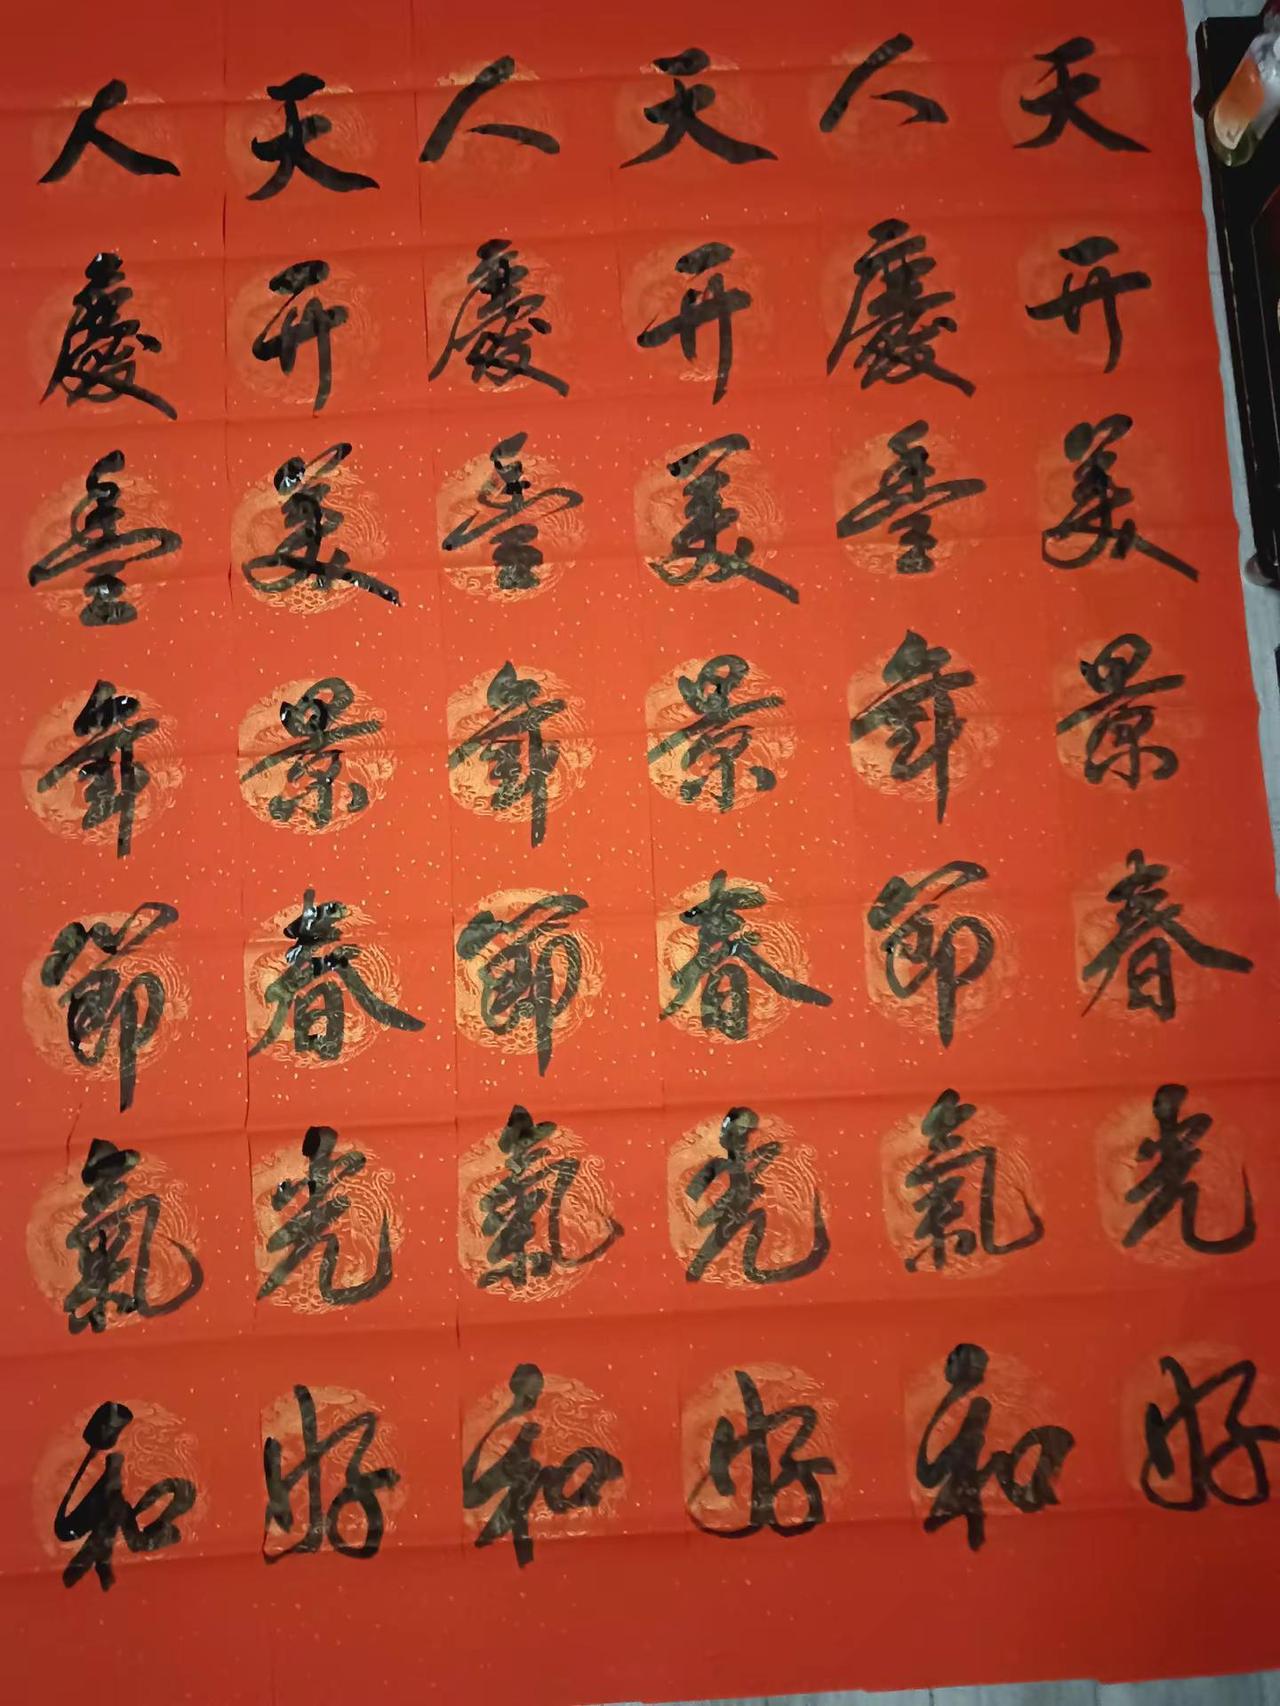 天开美景春光好
人慶豐年節氣和
天开美景春光好
人慶豐年節氣和
天开美景春光好
人慶豐年節氣和